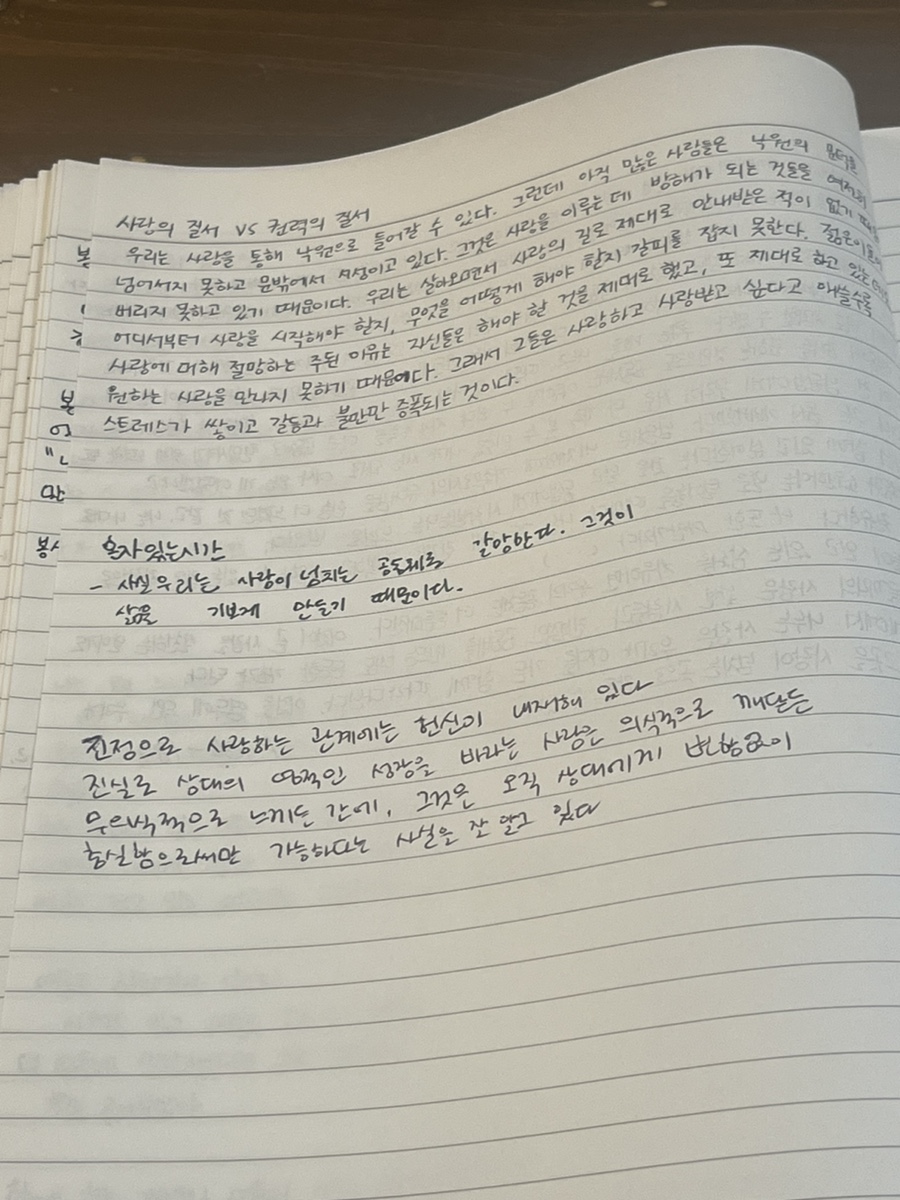 사랑의 질서 vs 권력의 질서
우리는 사랑을 통해 낙원으로 들어갈 수 있다. 그런데 아직 많은 사람들은 낙원의 문턱을
넘어서지 못하고 문밖에서 서성이고 있다. 그것은 사랑을 이루는 데 방해가 되는 것들을 여전히
버리지 못하고 있기 때문이다. 우리는 살아오면서 사랑의 길로 제대로 안내받은 적이 없기
어디서부터 사랑을 시작해야 할지, 무엇을 어떻게 해야 할지 갈피를 잡지 못한다. 젊은이들이
사랑에 대해 절망하는 주된 이유는 자신들은 해야 할 것을 제대로 했고, 또 제대로 하고 있는
원하는 사랑을 만나지 못하기 때문이다. 그래서 그들은 사랑하고 사랑받고 싶다고 애쓸수록
스트레스가 쌓이고 갈등과 불만만 증폭되는 것이다.
혼자 있는 시간
- 사실 우리는 사랑이 넘치는 공동체를 갈망한다. 그것이
삶을 기쁘게 만들기 때문이다.
진정으로 사랑하는 관계에는 헌신이 내재해 있다
진실로 상대의 영적인 성장을 바라는 사람은 의식적으로 깨닫든
무의식적으로 느끼든 간에, 그것은 오직 상대에게 변함없이
충실함으로써만 가능하다는 사실을 잘 알고 있다